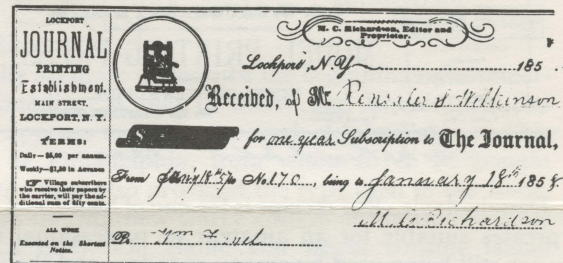 LOCKPORT
JOURNAL
PRINTING
Establishment.
MAIN STREET.
LOCKPORT, N. Y.
TERMS:
Daily—$5,00 per annum.
Weekly—$1,50 in Advance
Village subscribers
who receive their papers by
the carrier, will pay the ad-
ditional sum of fifty cents.
ALL WORK
Executed on the Shortest
Notice.
M. C. Richardson, Editor and
Proprietor.
Lockport, N. Y. 185
Received, of Mr. Wilkinson
for one year Subscription to The Journal,
From to No. 170, being to January 18th 1858
M. C. Richardson
Pr.